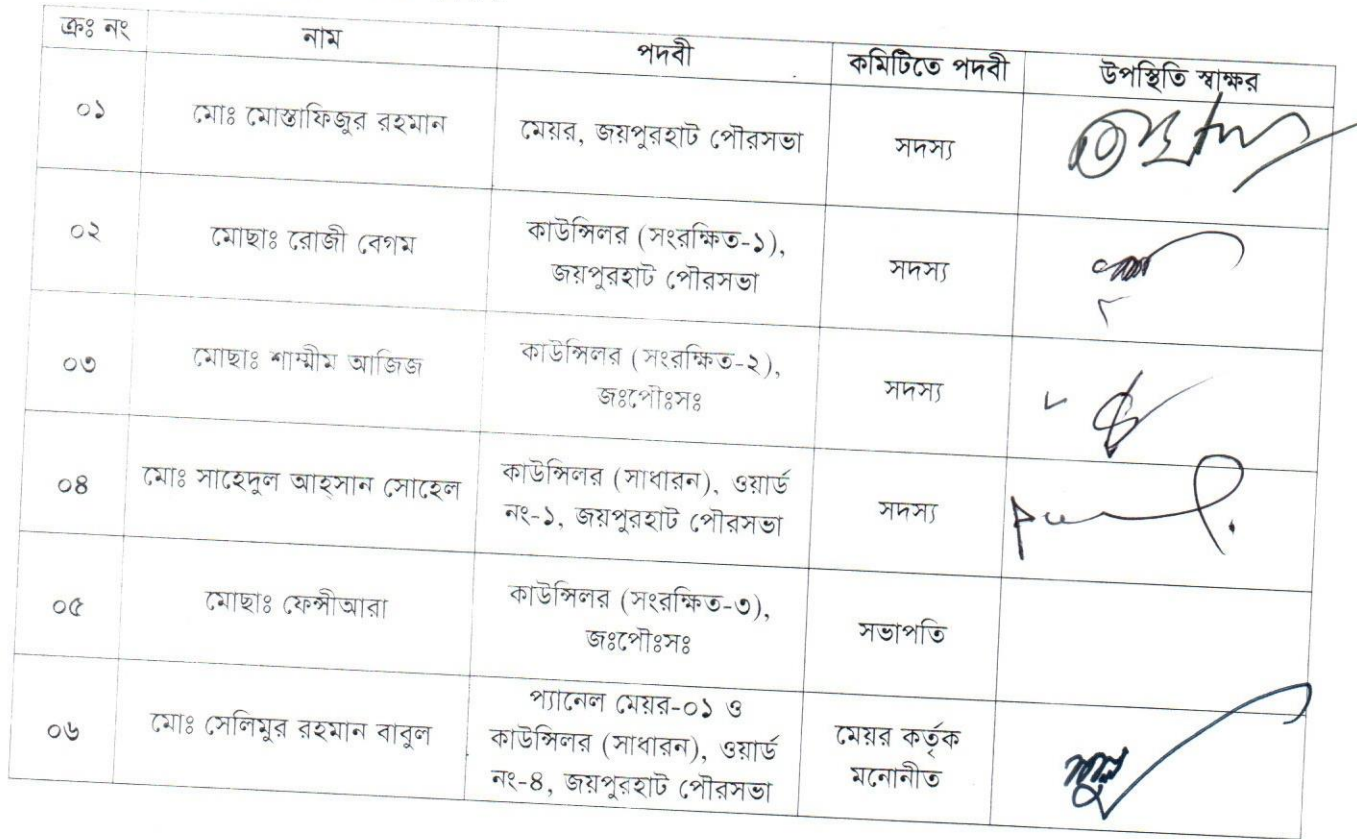 ক্রঃ নং নাম পদবী কমিটিতে পদবী উপস্থিতি স্বাক্ষর
০১ মোঃ মোস্তাফিজুর রহমান মেয়র, জয়পুরহাট পৌরসভা সদস্য
০২ মোছাঃ রোজী বেগম কাউন্সিলর (সংরক্ষিত-১),
জয়পুরহাট পৌরসভা সদস্য
০৩ মোছাঃ শাম্মীম আজিজ কাউন্সিলর (সংরক্ষিত-২),
জঃপৌঃসঃ সদস্য
০৪ মোঃ সাহেদুল আহসান সোহেল কাউন্সিলর (সাধারন), ওয়ার্ড
নং-১, জয়পুরহাট পৌরসভা সদস্য
০৫ মোছাঃ ফেন্সীআরা কাউন্সিলর (সংরক্ষিত-৩),
জঃপৌঃসঃ সভাপতি
০৬ মোঃ সেলিমুর রহমান বাবুল প্যানেল মেয়র-০১ ও
কাউন্সিলর (সাধারন), ওয়ার্ড
নং-৪, জয়পুরহাট পৌরসভা মেয়র কর্তৃক
মনোনীত